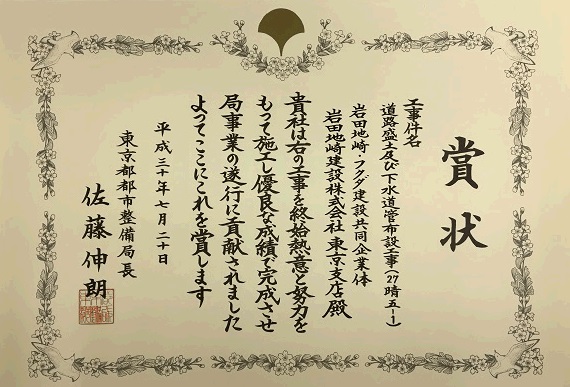 賞状
工事件名
道路盛土及び下水道管布設工事(27晴五-1)
岩田地崎・フクダ建設共同企業体
岩田地崎建設株式会社 東京支店 殿
貴社は右の工事を終始熱意と努力を
もって施工し優良な成績で完成させ
局事業の遂行に貢献されました
よってここにこれを賞します
平成三十年七月二十日
東京都都市整備局長
佐藤伸朗